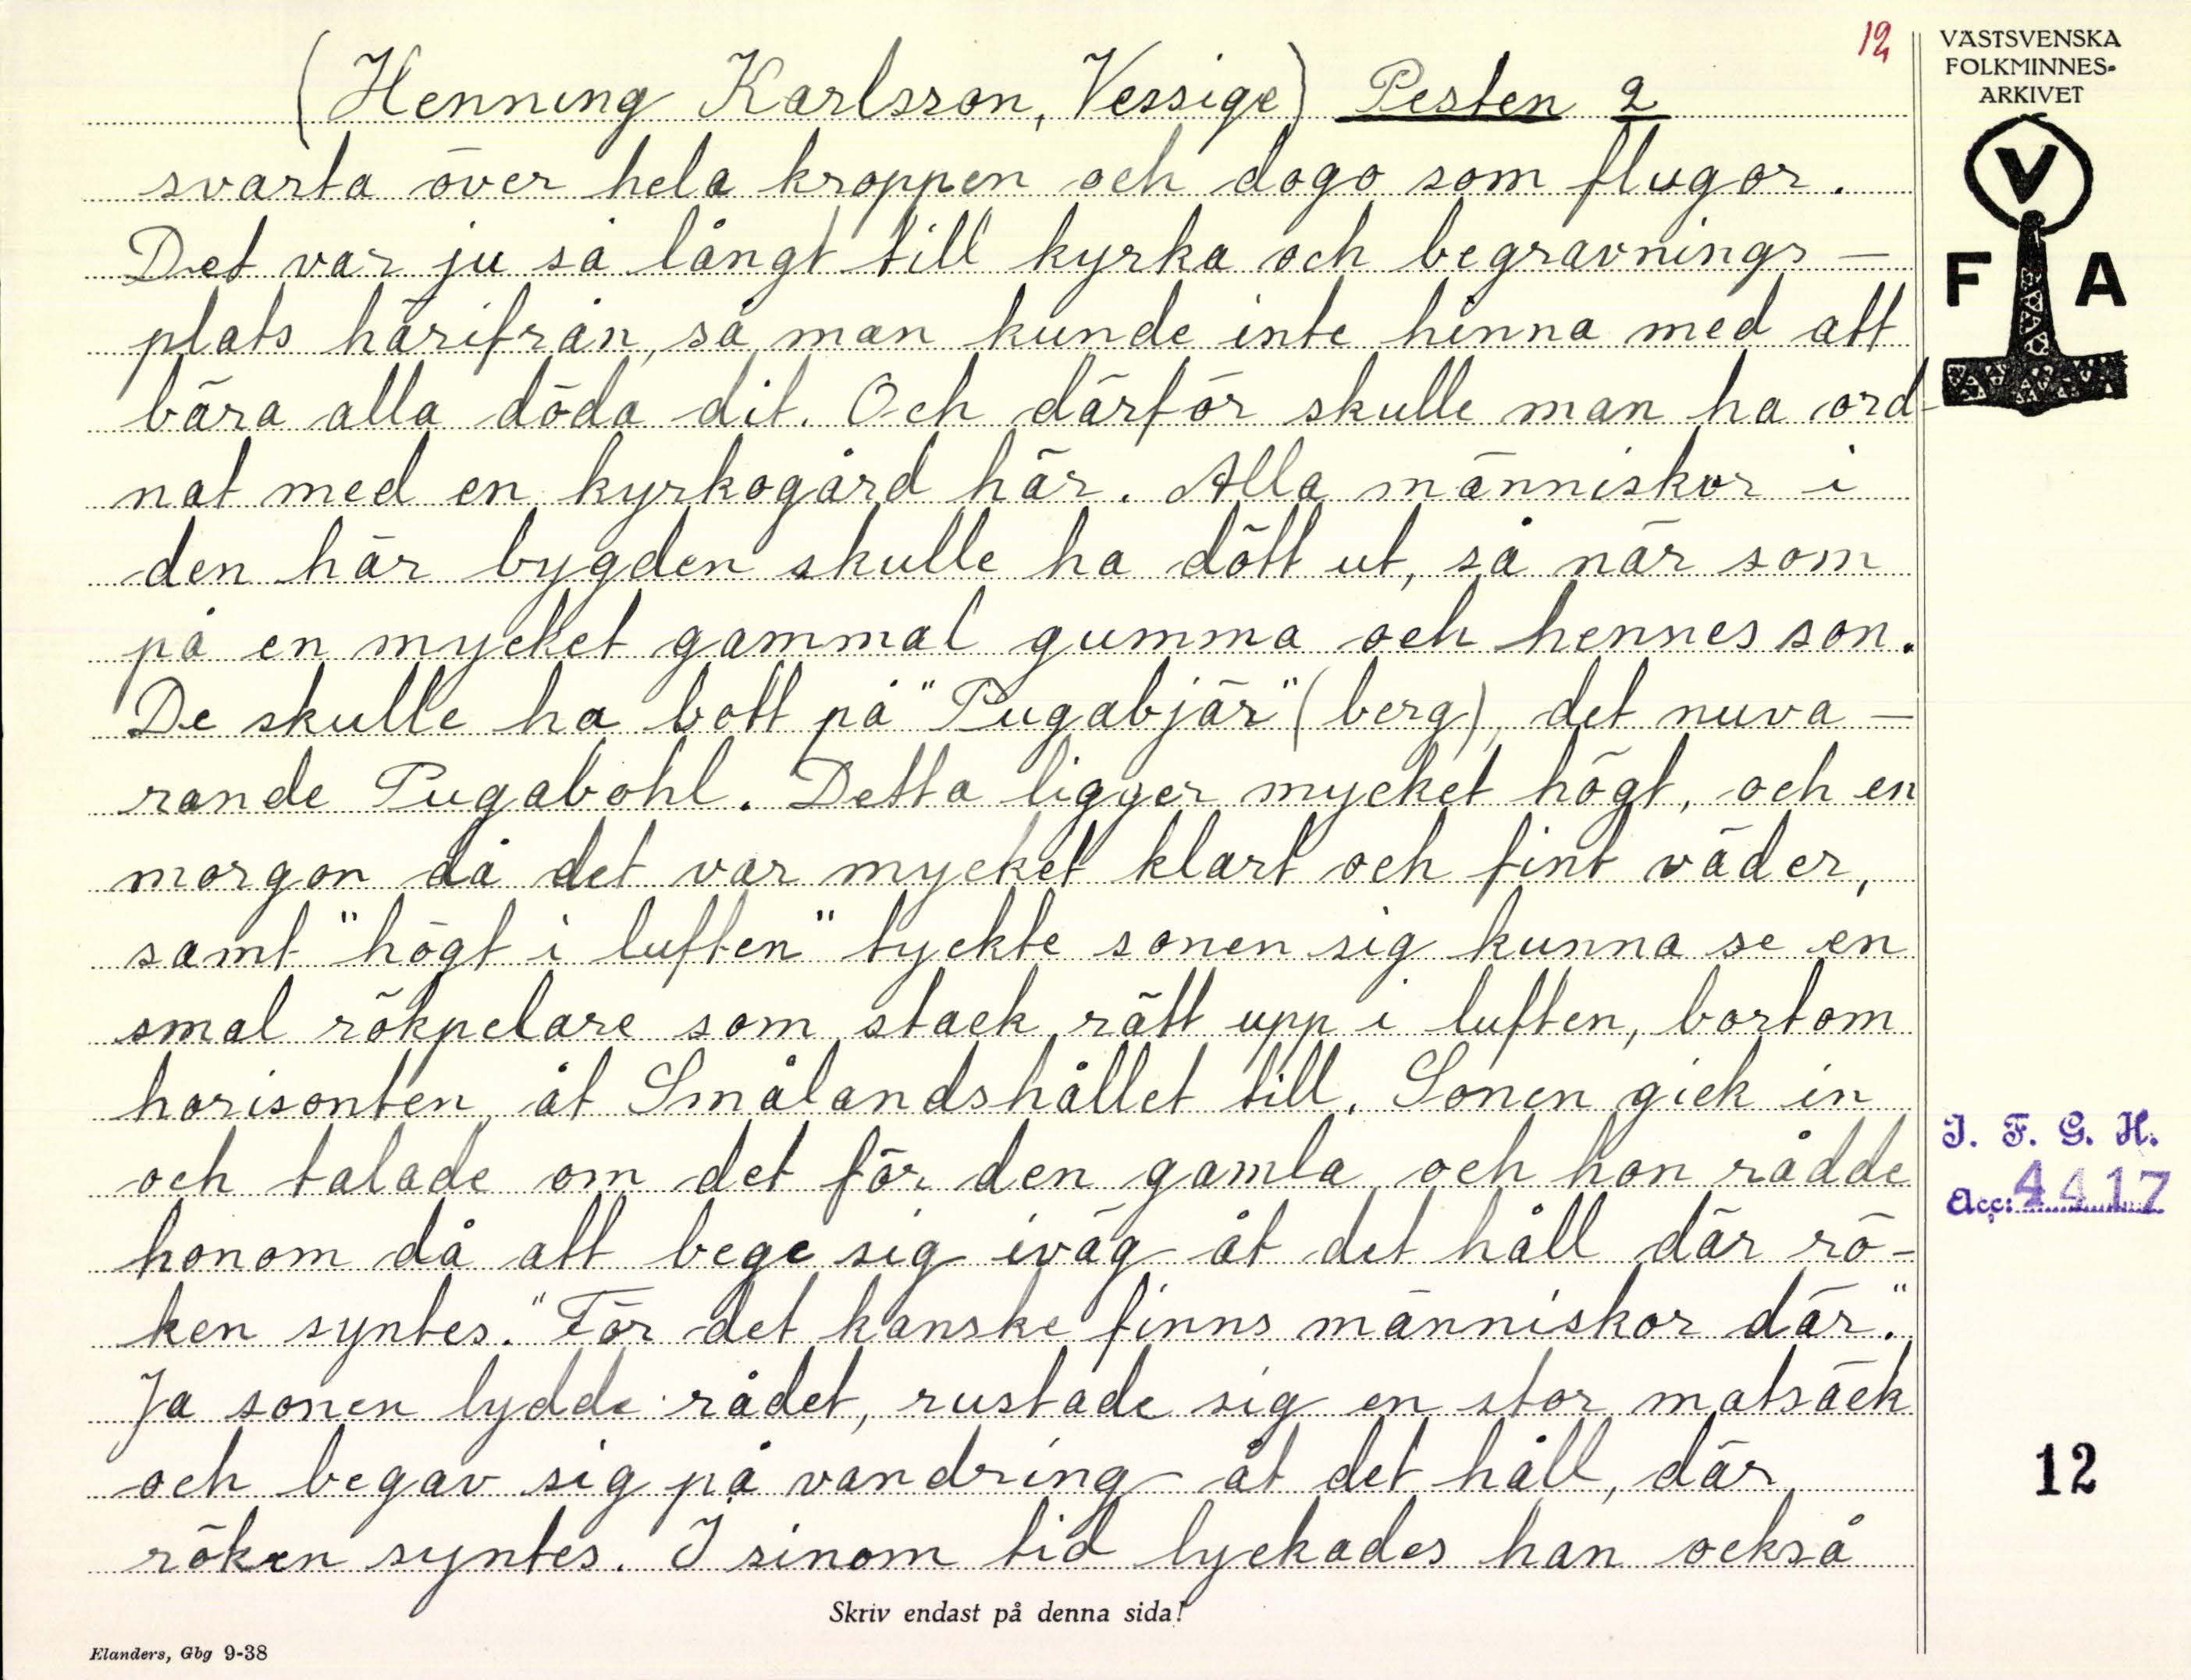 12
(Henning Karlsson, Vessige) Pesten 2
svarta över hela kroppen och dogo som flugor.
Det var ju så långt till kyrka och begravnings-
plats härifrån, så man kunde inte hinna med att
bära alla döda dit. Och därför skulle man ha ord-
nat med en kyrkogård här. Alla människor i
den här bygden skulle ha dött ut, så när som
på en mycket gammal gumma och hennes son.
De skulle ha bott på "Pugabjär" (berg), det nuva-
rande Pugabohl. Detta ligger mycket högt, och en
morgon då det var mycket klart och fint väder,
samt "högt i luften" tyckte sonen sig kunna se en
smal rökpelare som stack rätt upp i luften, bortom
horisonten, åt Smålandshållet till. Sonen gick in
och talade om det för den gamla och hon rådde
honom då att bege sig iväg åt det håll där rö-
ken syntes. "För det kanske finns människor där."
Ja sonen lydde rådet, rustade sig en stor matsäck
och begav sig på vandring åt det håll, där
röken syntes. I sinom tid lyckades han också
Skriv endast på denna sida!
Elanders, Gbg 9-38
VÄSTSVENSKA
FOLKMINNES-
ARKIVET
V
F A
I. F. G. H.
Acc: 4417
12